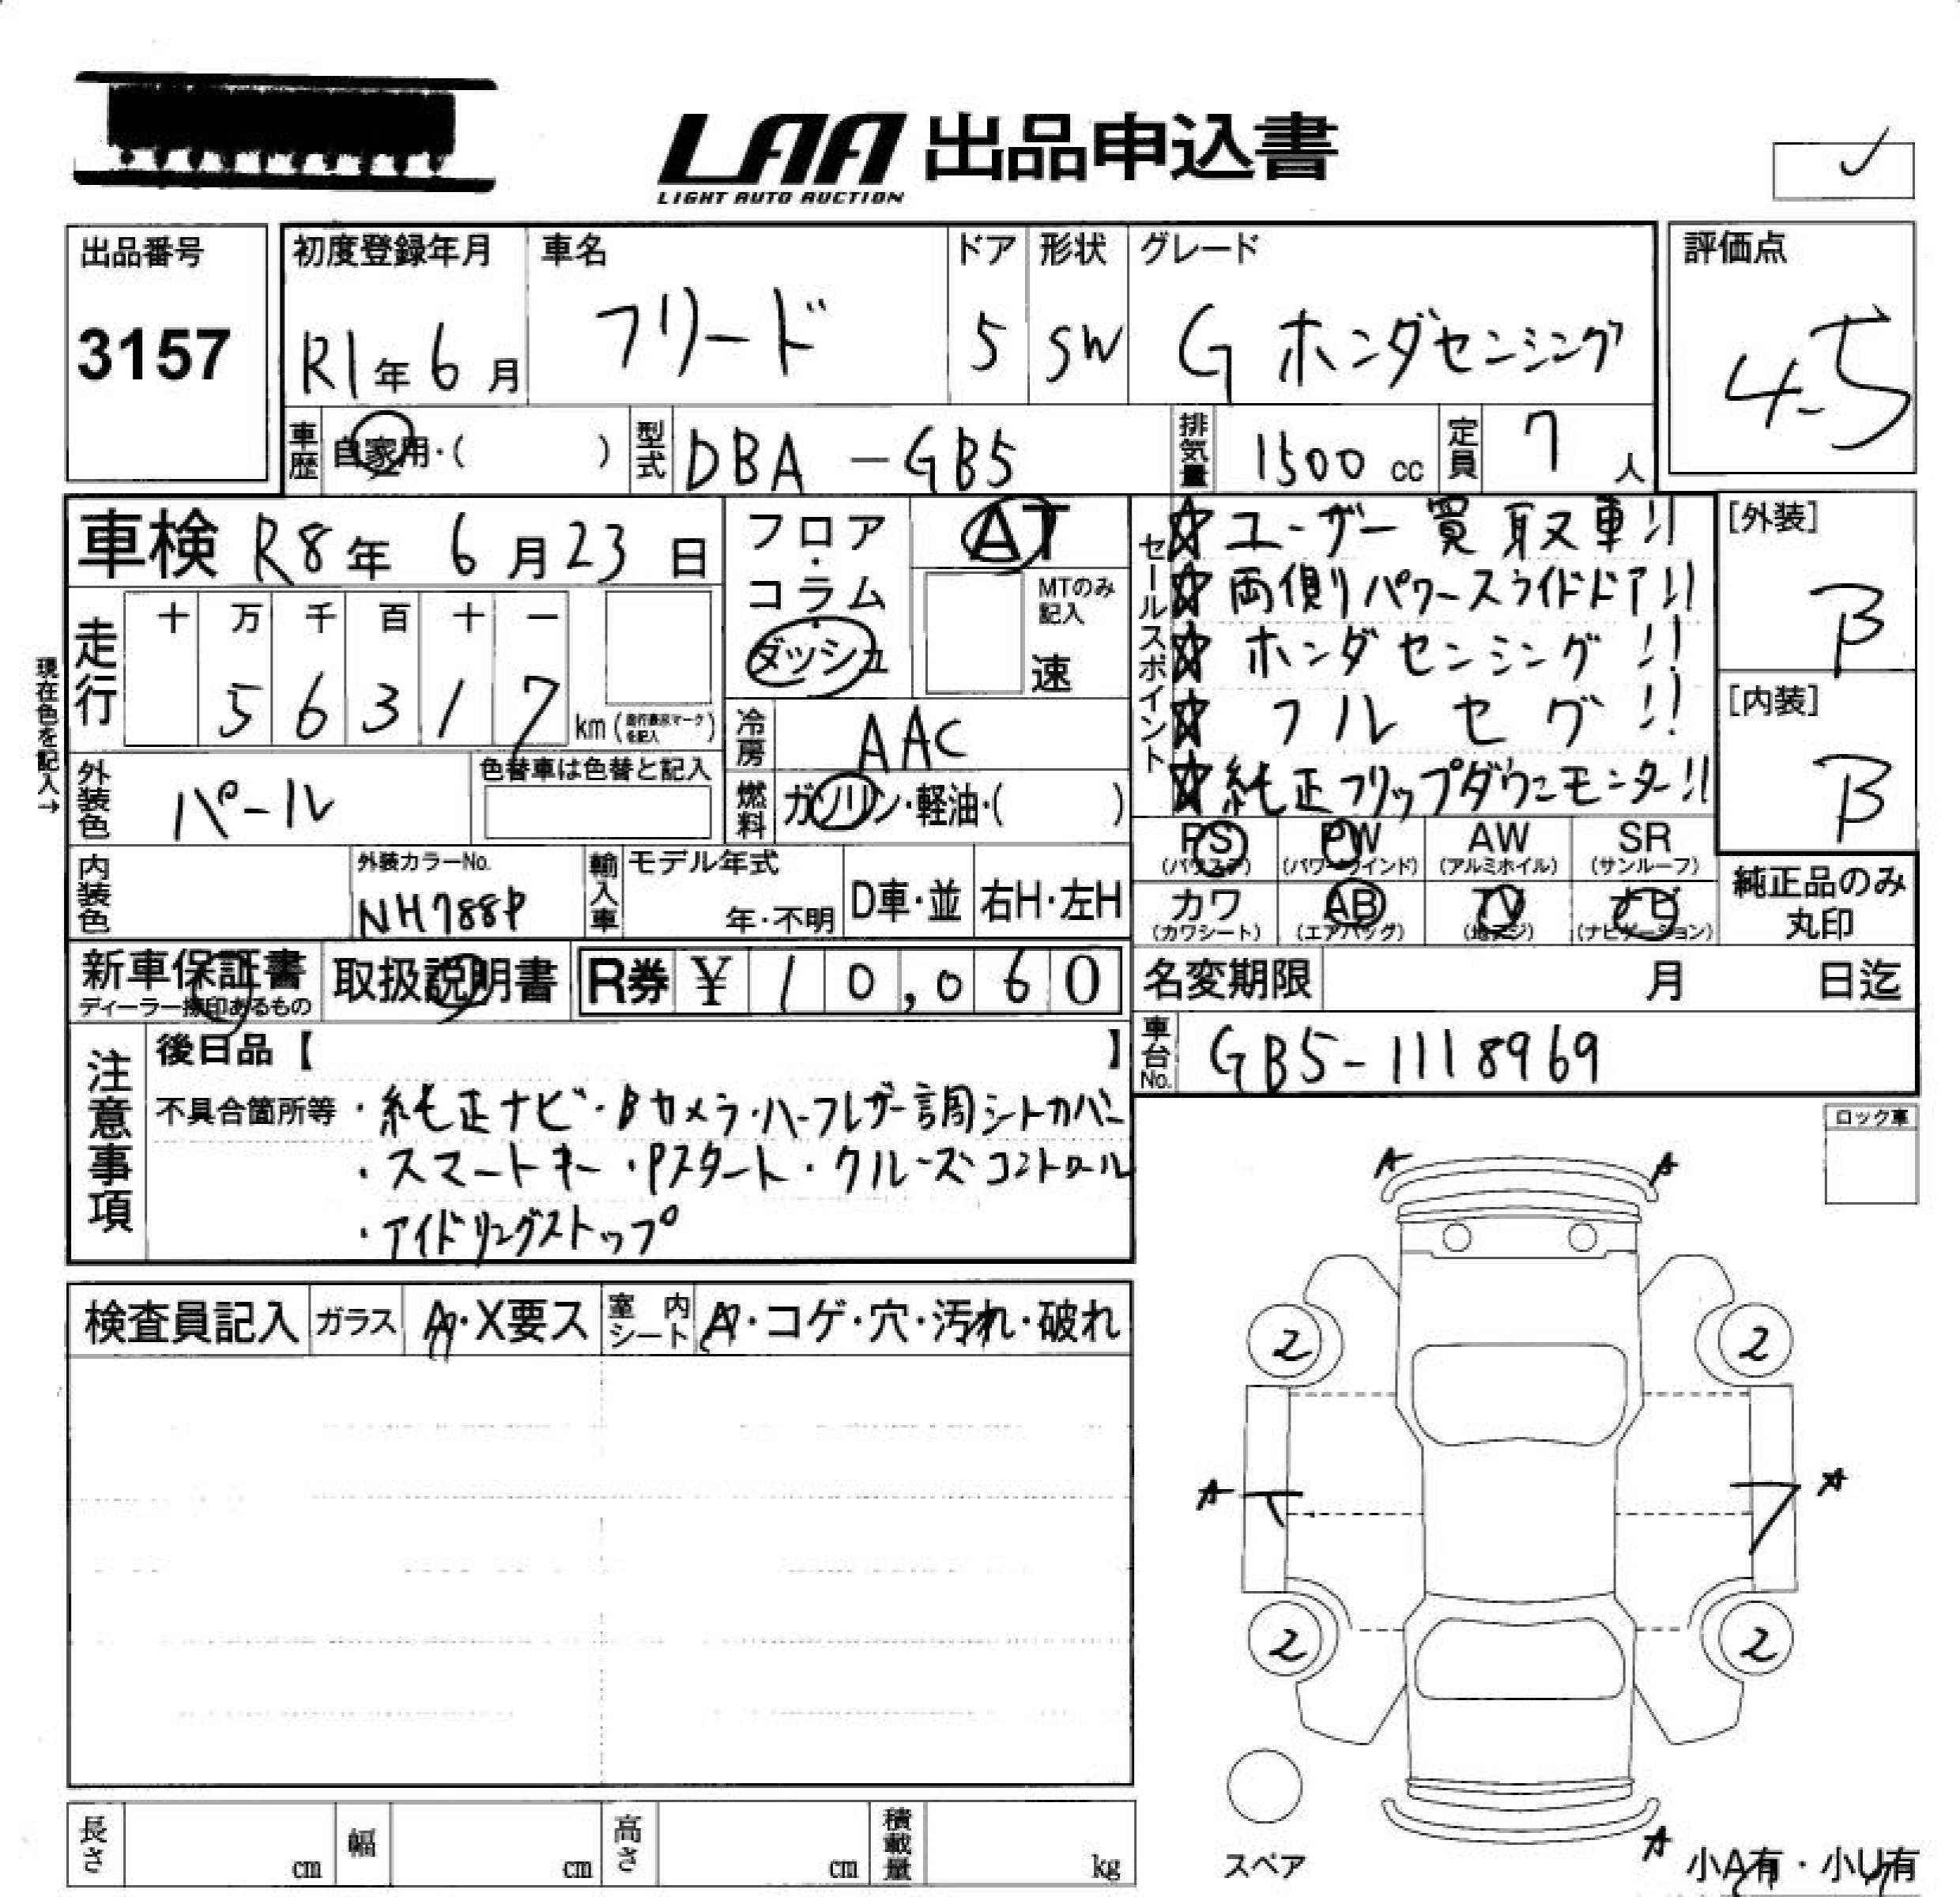 LAA 出品申込書
LIGHT AUTO AUCTION
出品番号
3157
初度登録年月
R1年6月
車名
フリード
ドア
5
形状
SW
グレード
G ホンダセンシング
評価点
4.5
車歴
自家用・( )
型式
DBA-GB5
排気量
1500 cc
定員
7人
車検 R8年 6月23日
現在色を記入→
走行
十 万 千 百 十 一
5 6 3 1 7 km(走行表示マークを記入)
フロア・コラム・ダッシュ
AT
MTのみ記入
速
冷房
AAC
燃料
ガソリン・軽油・( )
外装色
パール
色替車は色替と記入
内装色
外装カラーNo.
NH788P
輸入車
モデル年式
年・不明
D車・並
右H・左H
セールスポイント
☆ユーザー買取車!!
☆両側パワースライドドア!!
☆ホンダセンシング!!
☆フルセグ!!
☆純正フリップダウンモニター!!
[外装]
B
[内装]
B
PS
(パワステ)
PW
(パワーウインド)
AW
(アルミホイル)
SR
(サンルーフ)
カワ
(カワシート)
AB
(エアバッグ)
TV
(地デジ)
ナビ
(ナビゲーション)
純正品のみ
丸印
新車保証書
ディーラー捺印あるもの
取扱説明書
R券 ¥10,060
名変期限 月 日迄
車台No.
GB5-1118969
注意事項
後日品【 】
不具合箇所等 ・純正ナビ・Bカメラ・ハーフレザー調シートカバー
・スマートキー・Pスタート・クルーズコントロール
・アイドリングストップ
ロック車
検査員記入
ガラス
A・X要ス
室内シート
A・コゲ・穴・汚れ・破れ
A A
2 2
A A
2 2
スペア
A
小A有・小U有
長さ cm
幅 cm
高さ cm
積載量 kg